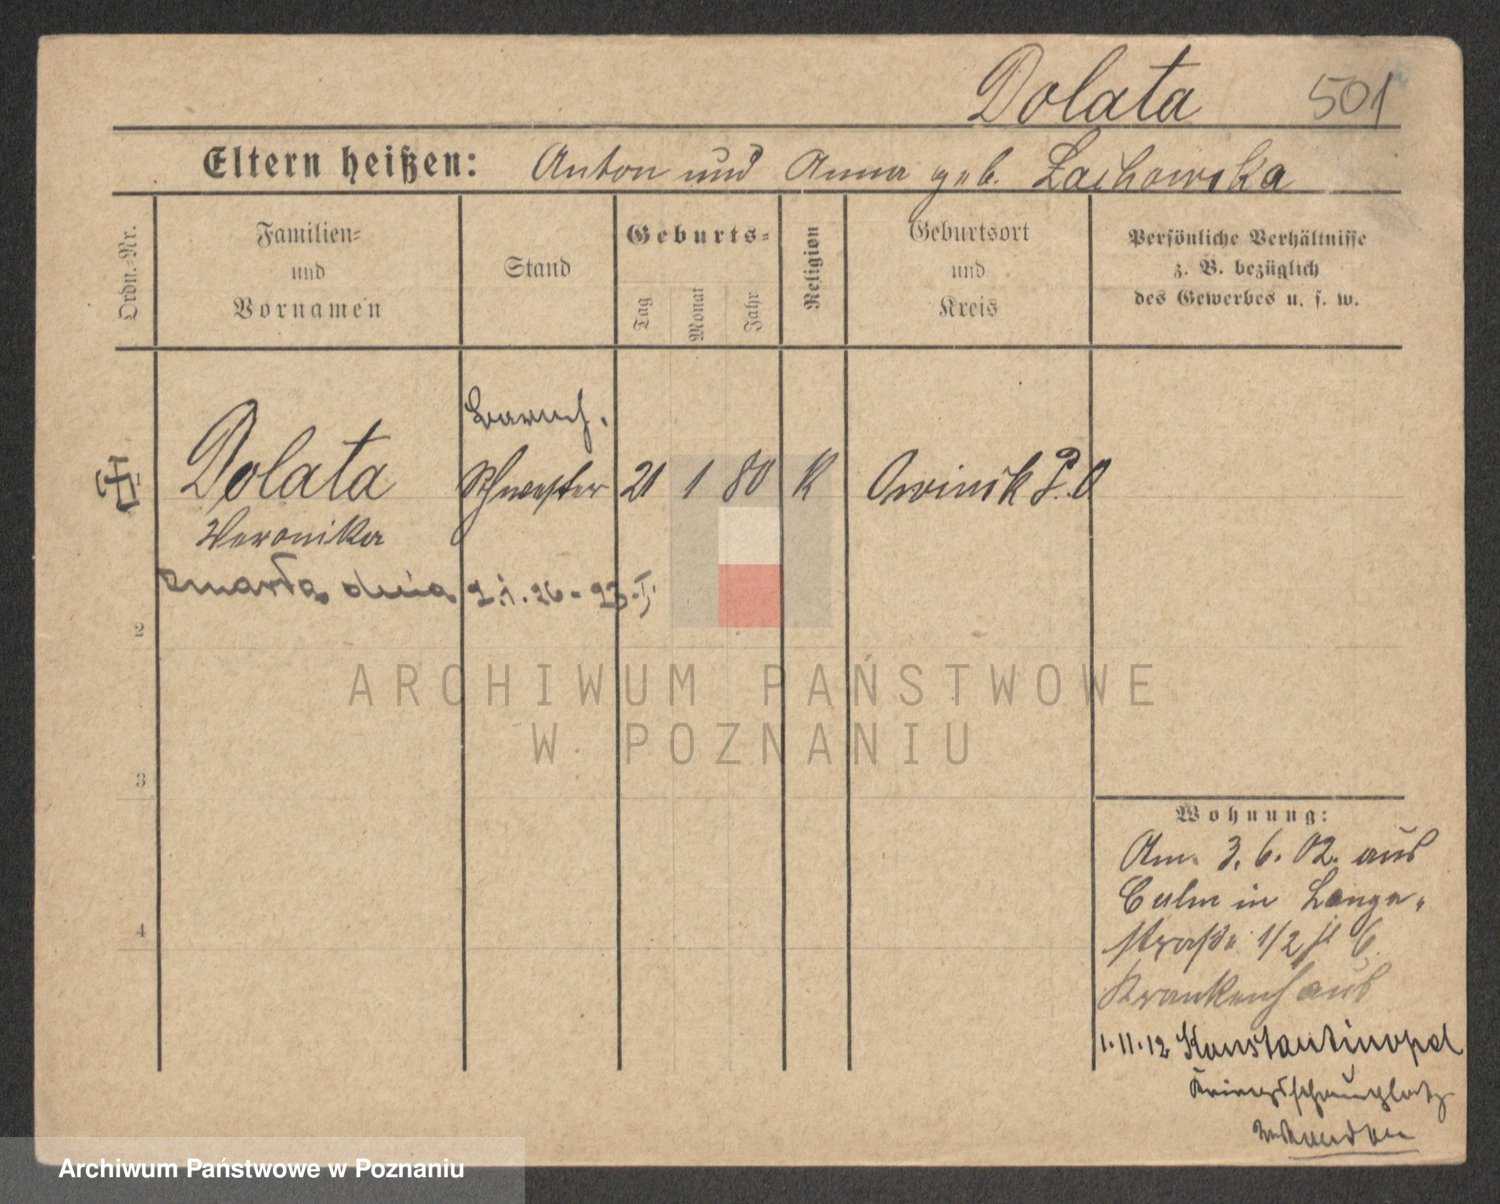 Dolata 501
Eltern heißen: Anton und Anna geb. Lachowska
Ordn.-Nr.
Familien=
und
Vornamen
Stand
Geburts=
Tag
Monat
Jahr
Religion
Geburtsort
und
Kreis
Persönliche Verhältnisse
z. B. bezüglich
des Gewerbes u. s. w.
Barmh.
Dolata Schwester 21 1 80 K Owinsk P. O
Veronika
zmarła dnia 2.1.26 - 23
2
3
4
Wohnung:
Am 3. 6. 02. aus
Culm in Lange-
straße 1/2 6.
Krankenhaus
1.11.12 Konstantinopel
Kriegsschauplatz
ARCHIWUM PAŃSTWOWE
W POZNANIU
Archiwum Państwowe w Poznaniu